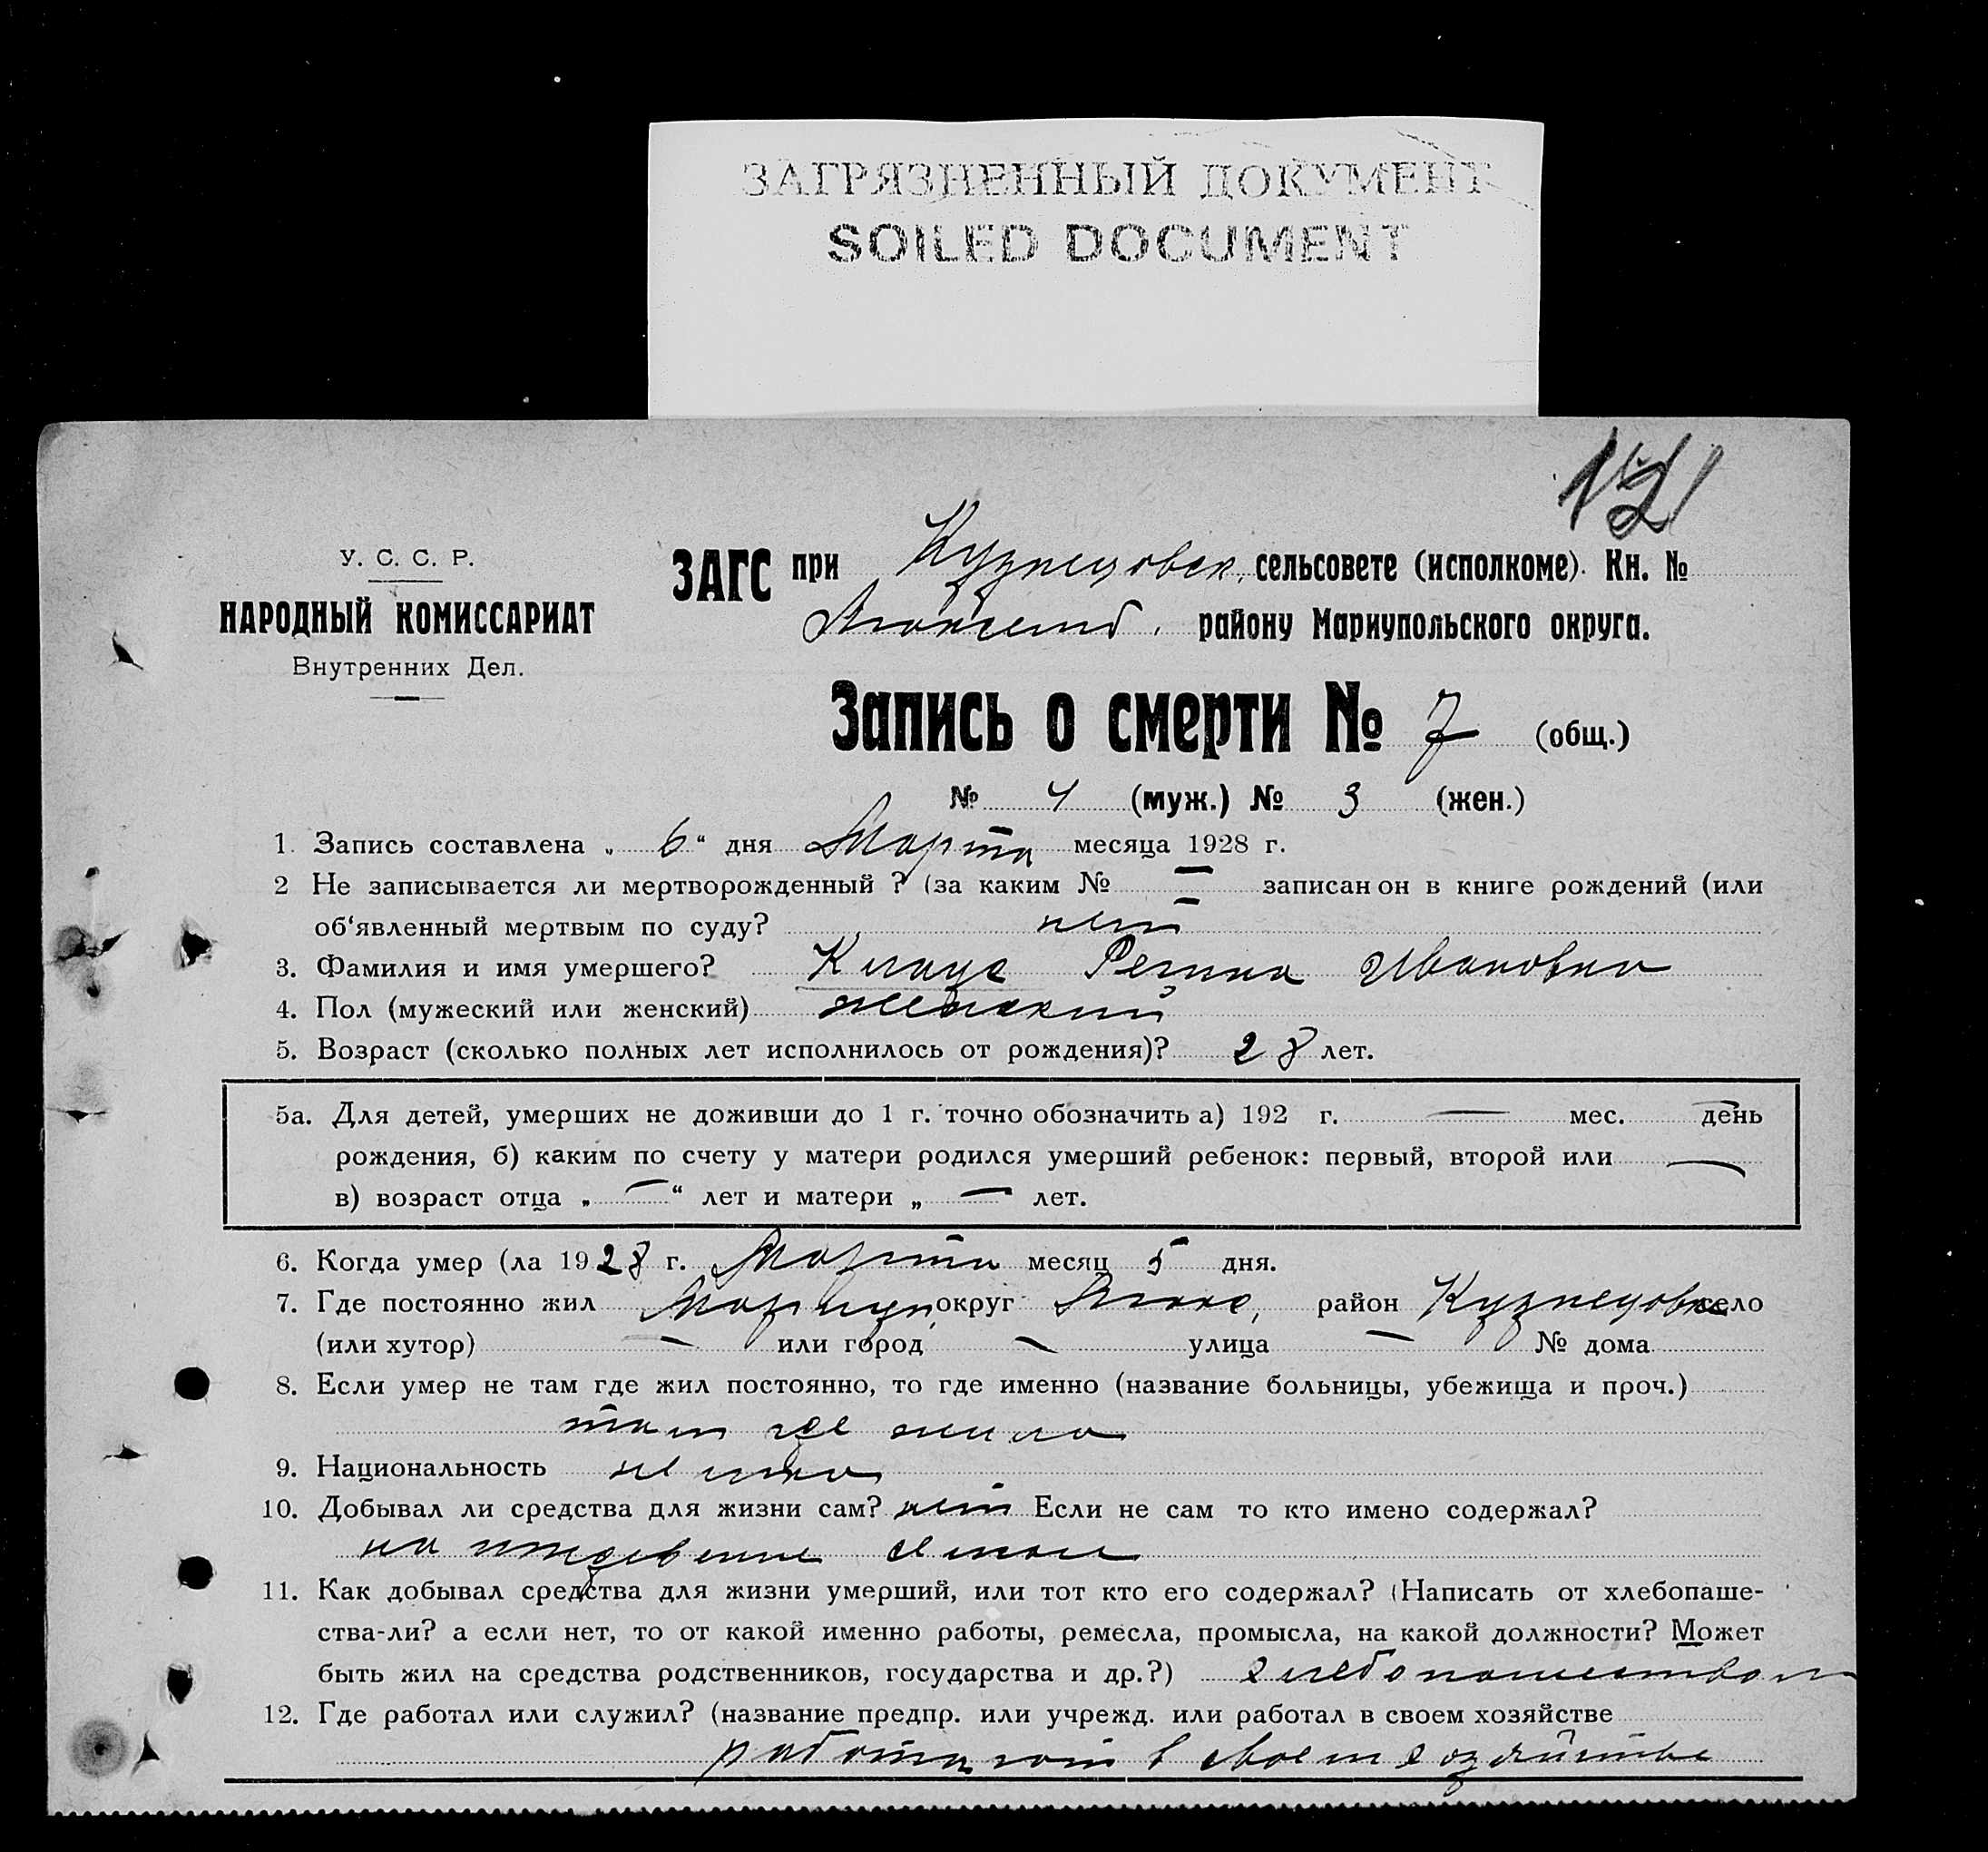 ЗАГРЯЗНЕННЫЙ ДОКУМЕНТ
SOILED DOCUMENT
121
У. С. С. Р.
НАРОДНЫЙ КОМИССАРИАТ
Внутренних Дел.
ЗАГС при Кузнецовск. сельсовете (исполкоме). Кн. №
району Мариупольского округа.
Запись о смерти № 7 (общ.)
№ 4 (муж.) № 3 (жен.)
1. Запись составлена „ 6 “ дня Марта месяца 1928 г.
2 Не записывается ли мертворожденный ? (за каким № — записан он в книге рождений (или
об‘явленный мертвым по суду? нет
3. Фамилия и имя умершего? Клаус Регина Ивановна
4. Пол (мужеский или женский) женский
5. Возраст (сколько полных лет исполнилось от рождения)? 28 лет.
5а. Для детей, умерших не доживши до 1 г. точно обозначить а) 192 г. — мес. — день
рождения, б) каким по счету у матери родился умерший ребенок: первый, второй или —
в) возраст отца „ — “ лет и матери „ — лет.
6. Когда умер (ла 1928 г. Марта месяц 5 дня.
7. Где постоянно жил Мариуп. округ район Кузнецовка село
(или хутор) — или город — улица — № дома
8. Если умер не там где жил постоянно, то где именно (название больницы, убежища и проч.)
там где жила
9. Национальность немка
10. Добывал ли средства для жизни сам? нет Если не сам то кто имено содержал?
на иждевении семьи
11. Как добывал средства для жизни умерший, или тот кто его содержал? (Написать от хлебопаше-
ства-ли? а если нет, то от какой именно работы, ремесла, промысла, на какой должности? Может
быть жил на средства родственников, государства и др.?) хлебопашеством
12. Где работал или служил? (название предпр. или учрежд. или работал в своем хозяйстве
работают в своем хозяйстве